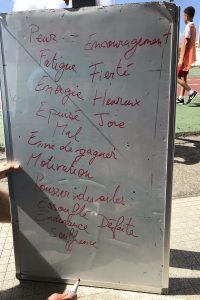 Peur - Encouragement
Fatigue Fierté
Energie Heureux
Epuisé Joie
Mal
Envie de gagner
Motivation
Essouflé
Endurance Défaite
Souffrance